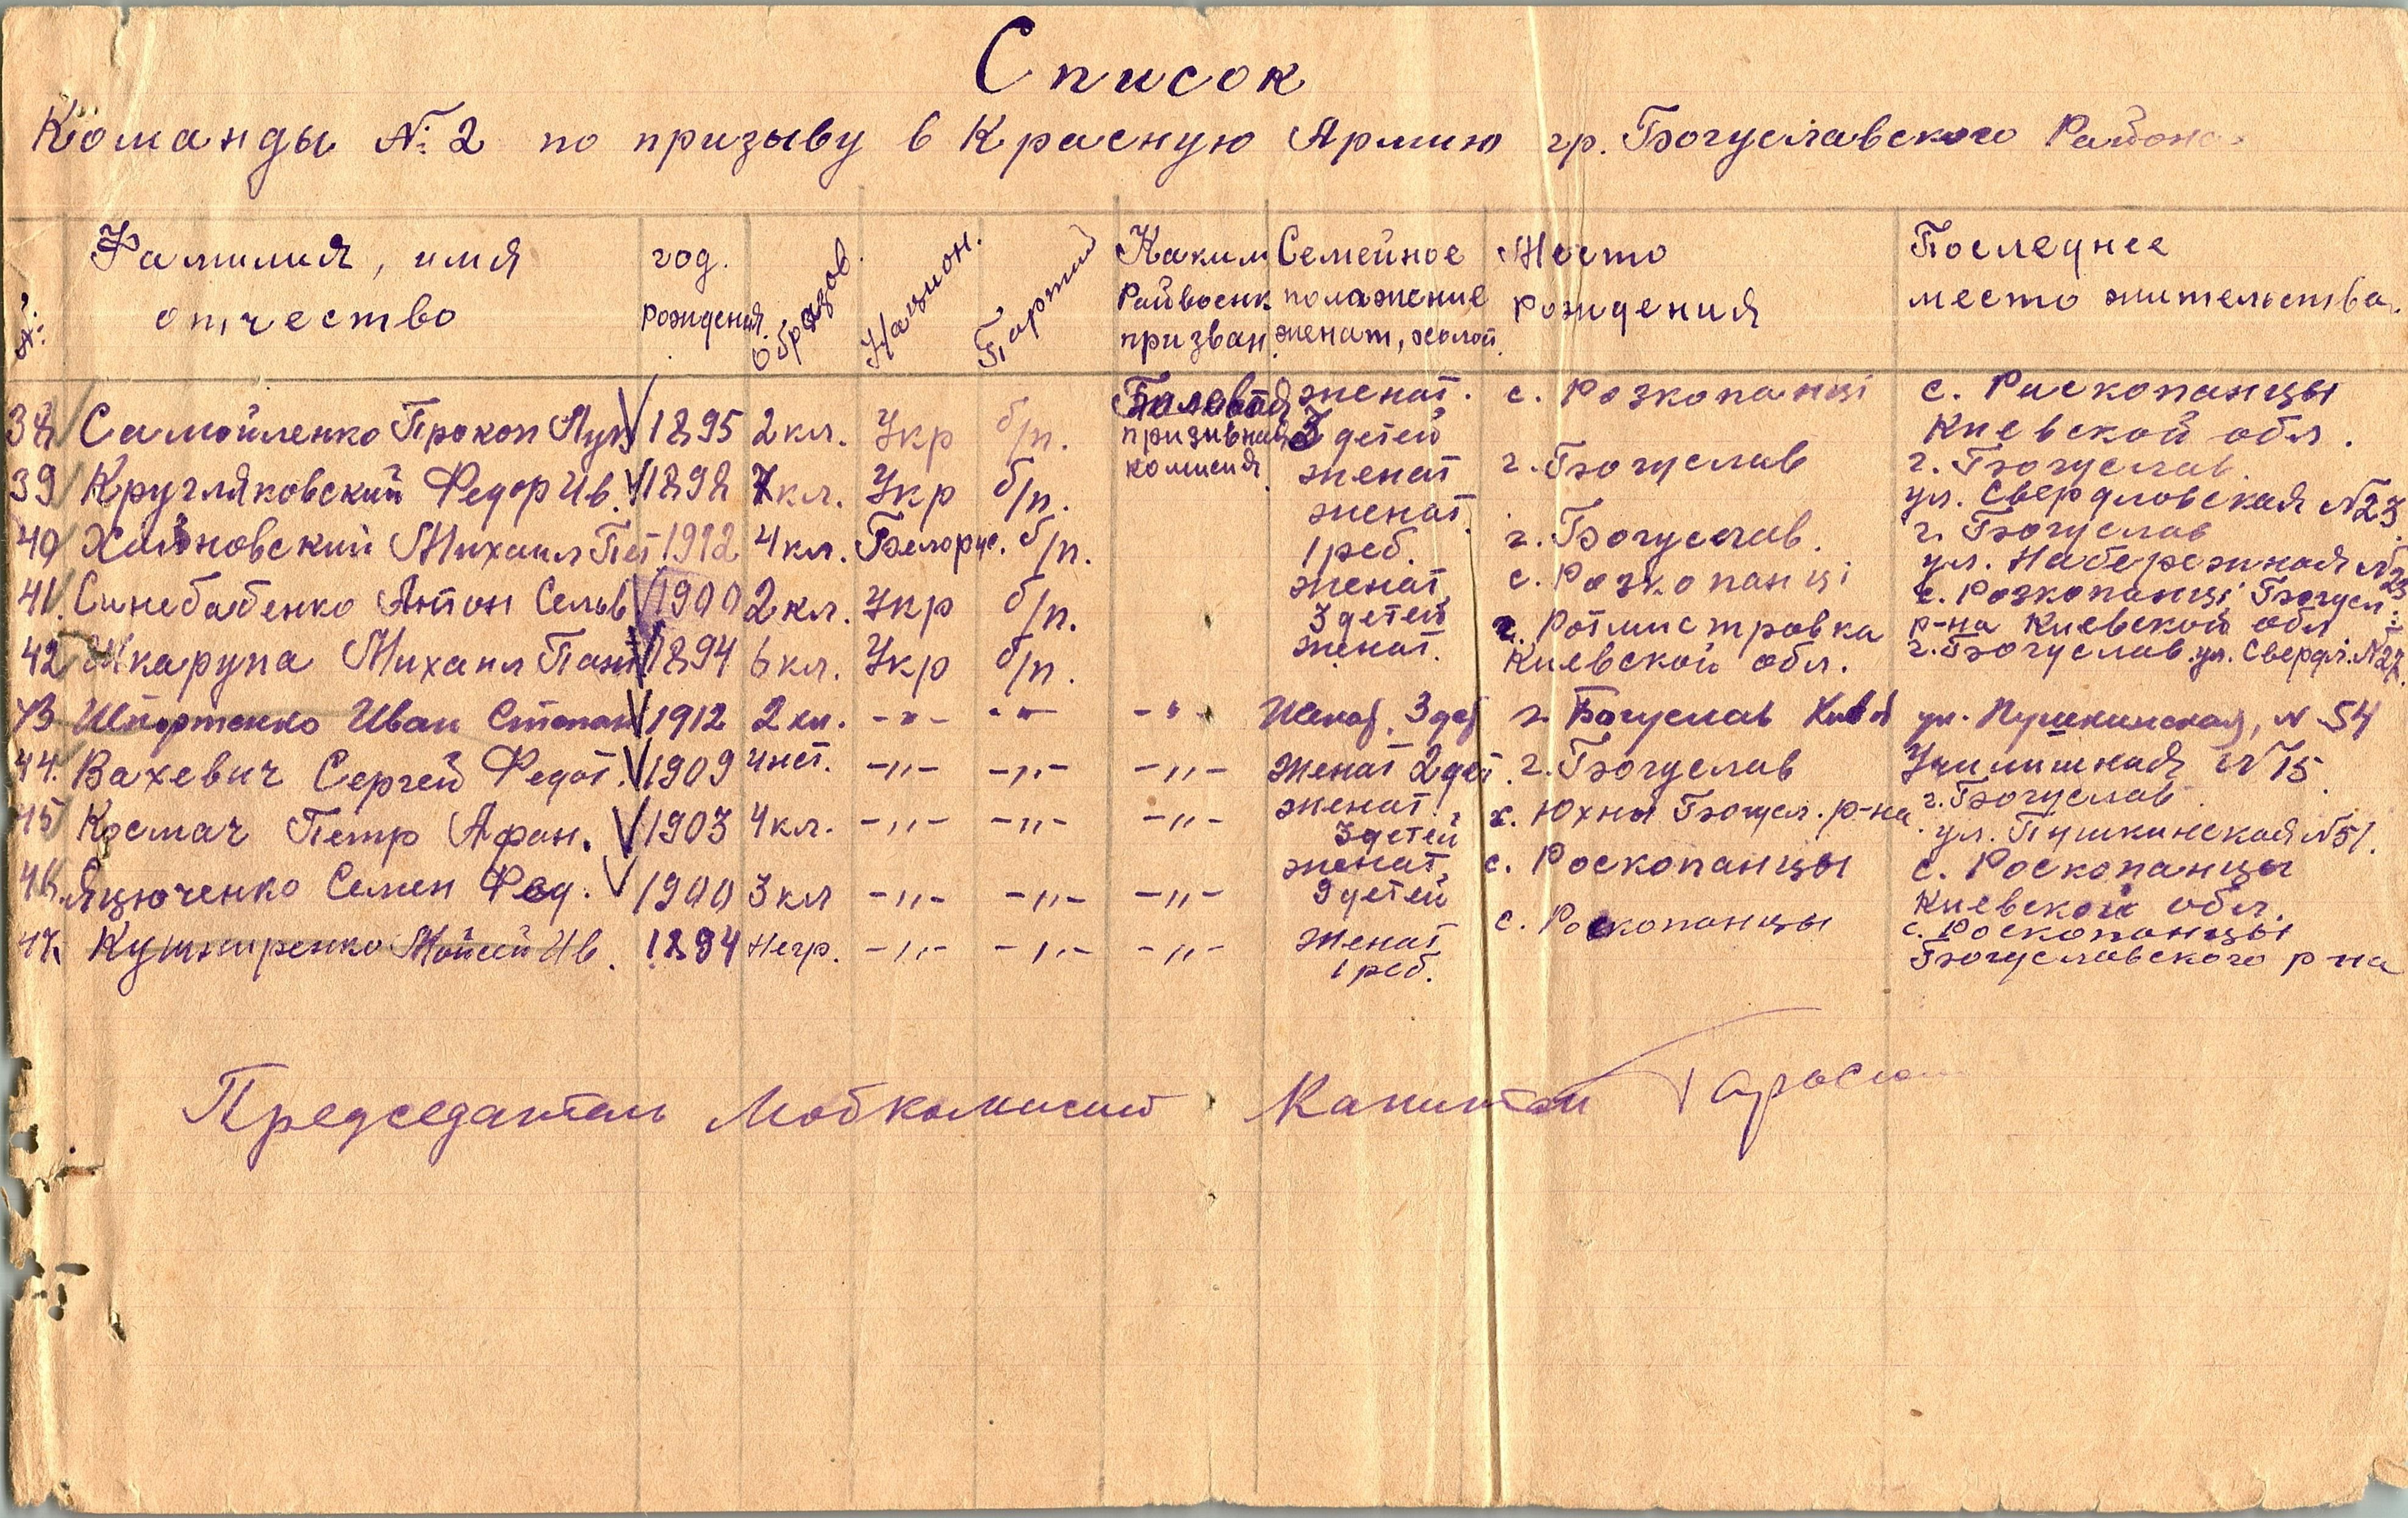 Список
Команды №: 2 по призыву в Красную Армию гр. Богуславского Района
№: Фамилия, имя отчество год. рождения Образов. Национ. Партий Каким Райвоенк призван Семейное положение женат, холост Место рождения Последнее место жительства
38 Самойленко Прокоп Лук 1895 2 кл. Укр б/п. Полевая призивная комисия женат. 3 детей с. Розкопанці с. Раскопанцы Киевской обл.
39 Кругляковский Федор Ив. 1898 7 кл. Укр б/п. женат г. Богуслав г. Богуслав. ул. Свердловская №23
40 Михаил Пет 1912 4 кл. Белорус. б/п. женат. 1 реб. г. Богуслав. г. Богуслав ул. Набережная №23
41. Синебабенко Антон Сельв 1900 2 кл. Укр б/п. женат, 3 детей с. Розкопанці с. Розкопанці Богусл. р-на Киевской обл
42 Шкарупа Михаил Пант 1894 6 кл. Укр б/п. женат. Ротмистровка Киевской обл. г. Богуслав. ул. Свердл. №27.
43 Шпортенко Иван Степан 1912 2 кл. -"- -"- -"- Женат. 3 дет г. Богуслав ул. Пушкинская, № 54
44. Вахевич Сергей Федот. 1909 4 нет. -"- -"- -"- Женат 2 дет. г. Богуслав Училишная №15 г. Богуслав
45 Космач Петр Афан. 1903 4 кл. -"- -"- -"- женат, 3 детей х. Юхны Богусл. р-на. ул. Пушкинская №51.
46. Яцюченко Семен Фед. 1900 3 кл -"- -"- -"- женат, 9 детей с. Роскопанцы с. Роскопанцы Киевской обл.
47. Кушниренко Мойсей Ив. 1894 Негр. -"- -"- -"- Женат 1 реб. с. Роскопанцы с. Роскопанцы Богуславского р-на
Председатель Мобкомисии Капитан